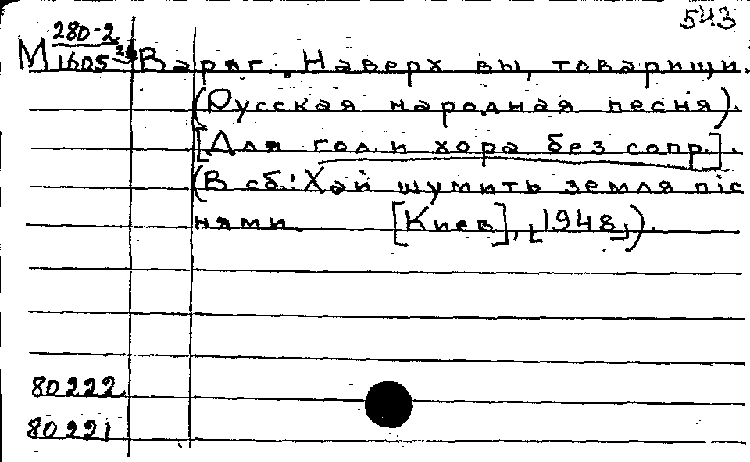 543
М 280-2
1605 Варяг. Наверх вы, товарищи.
(Русская народная песня).
[Для гол. и хора без сопр.].
(В сб.: Хай шумить земля піс
нями. [Киев], [1948]).
80222
80221